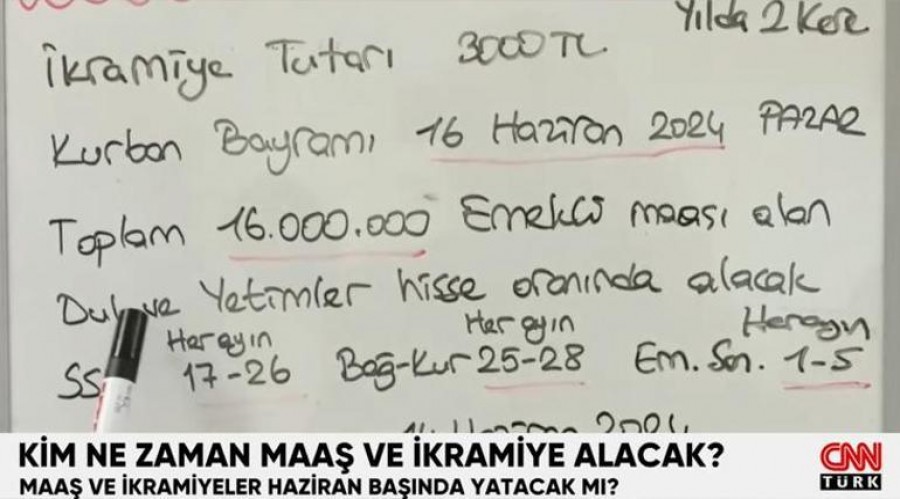 Yılda 2 Kez
İkramiye Tutarı 3000 TL
Kurban Bayramı 16 Haziran 2024 PAZAR
Toplam 16.000.000 Emekli maaşı alan
Dul ve Yetimler hisse oranında alacak
Her ayın Her ayın Her ayın
SS 17-26 Bağ-Kur 25-28 Em. San. 1-5
Haziran 2024
KİM NE ZAMAN MAAŞ VE İKRAMİYE ALACAK?
MAAŞ VE İKRAMİYELER HAZİRAN BAŞINDA YATACAK MI?
CNN
TÜRK